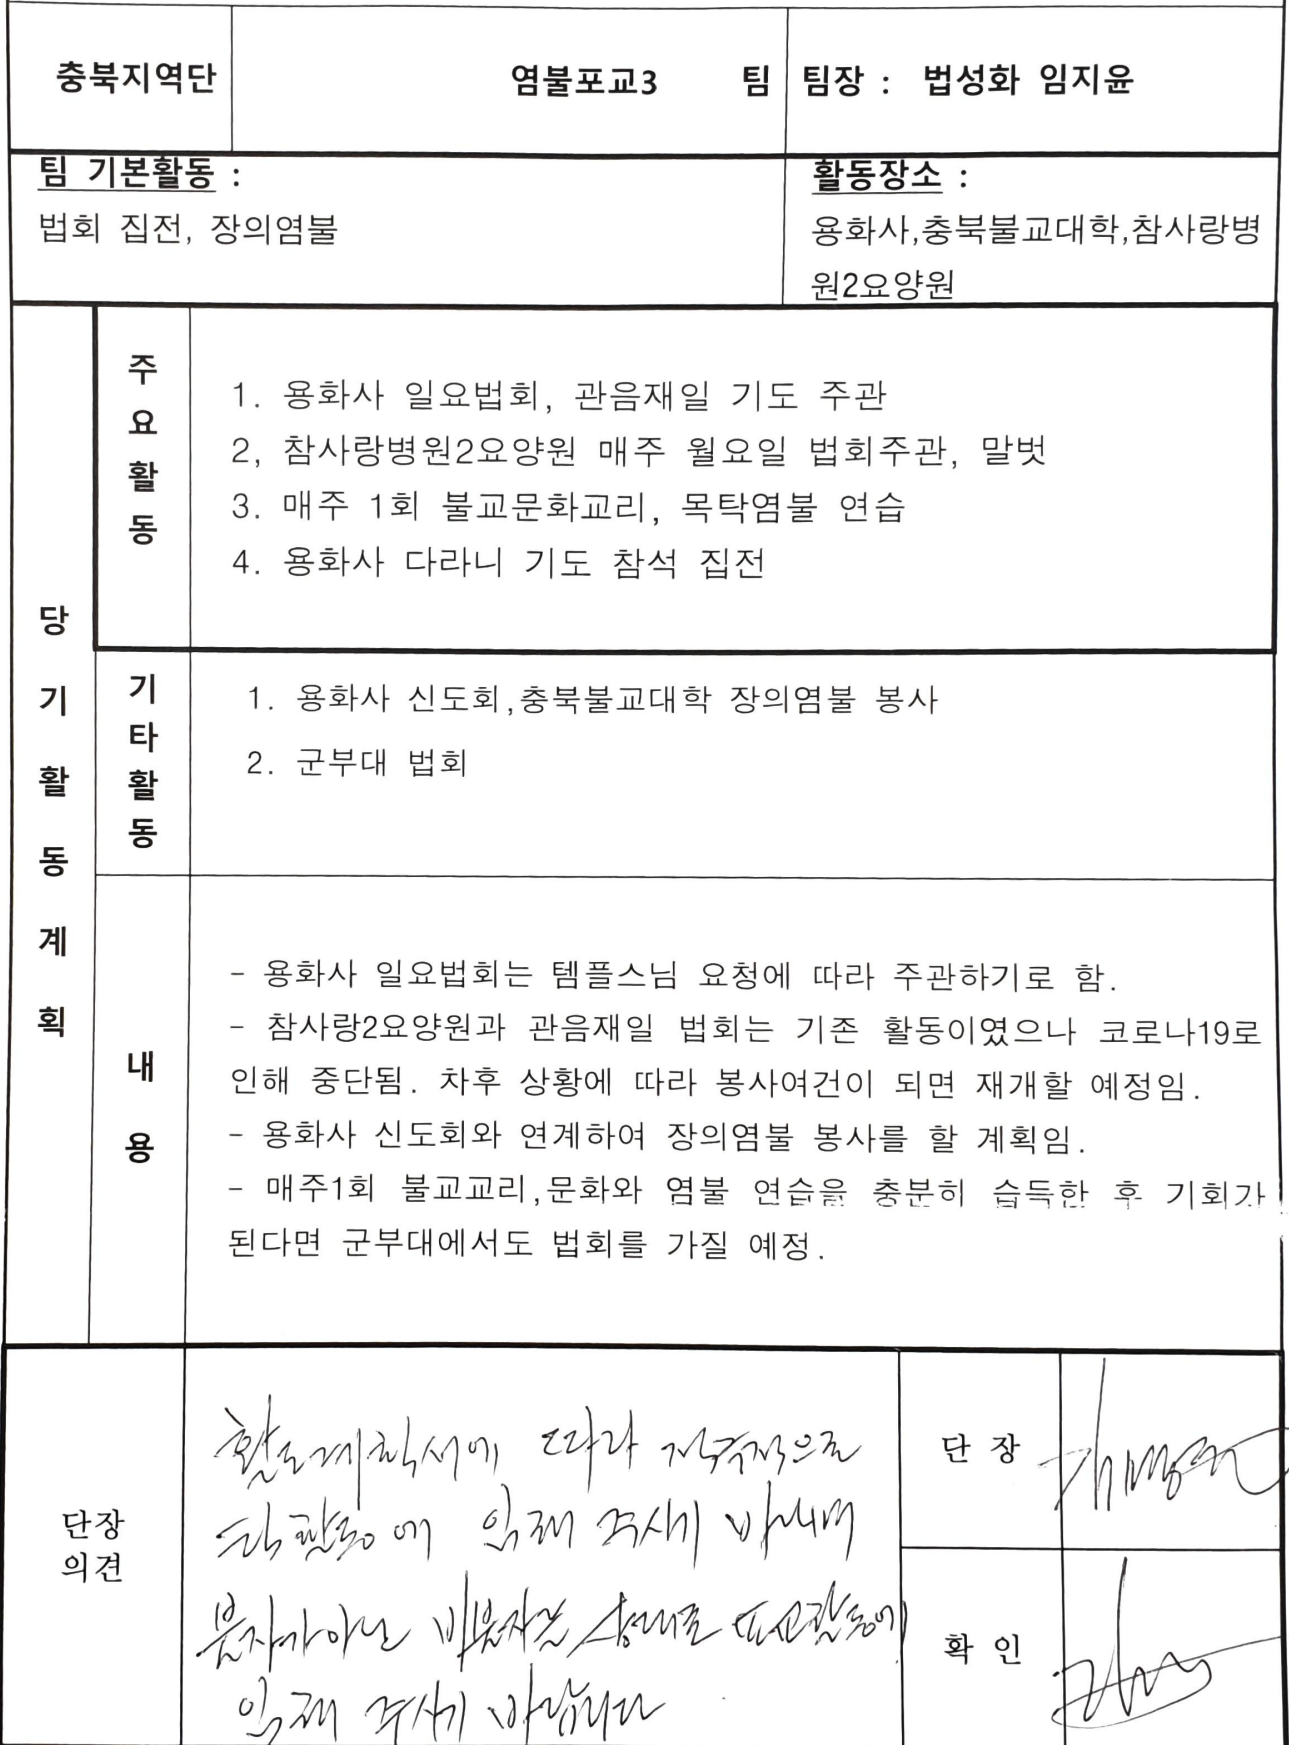 충북지역단 염불포교3 팀 팀장 : 법성화 임지윤
팀 기본활동 :
법회 집전, 장의염불
활동장소 :
용화사,충북불교대학,참사랑병
원2요양원
당기활동계획
주요활동
1. 용화사 일요법회, 관음재일 기도 주관
2, 참사랑병원2요양원 매주 월요일 법회주관, 말벗
3. 매주 1회 불교문화교리, 목탁염불 연습
4. 용화사 다라니 기도 참석 집전
기타활동
1. 용화사 신도회,충북불교대학 장의염불 봉사
2. 군부대 법회
내용
- 용화사 일요법회는 템플스님 요청에 따라 주관하기로 함.
- 참사랑2요양원과 관음재일 법회는 기존 활동이였으나 코로나19로
인해 중단됨. 차후 상황에 따라 봉사여건이 되면 재개할 예정임.
- 용화사 신도회와 연계하여 장의염불 봉사를 할 계획임.
- 매주1회 불교교리,문화와 염불 연습을 충분히 습득한 후 기회가
된다면 군부대에서도 법회를 가질 예정.
단장
의견
활동계획서에 따라 적극적으로
팀활동에 임해 주시기 바라며
불자가아닌 비불자를 상대로 포교활동에
임해 주시기 바랍니다
단 장
확 인